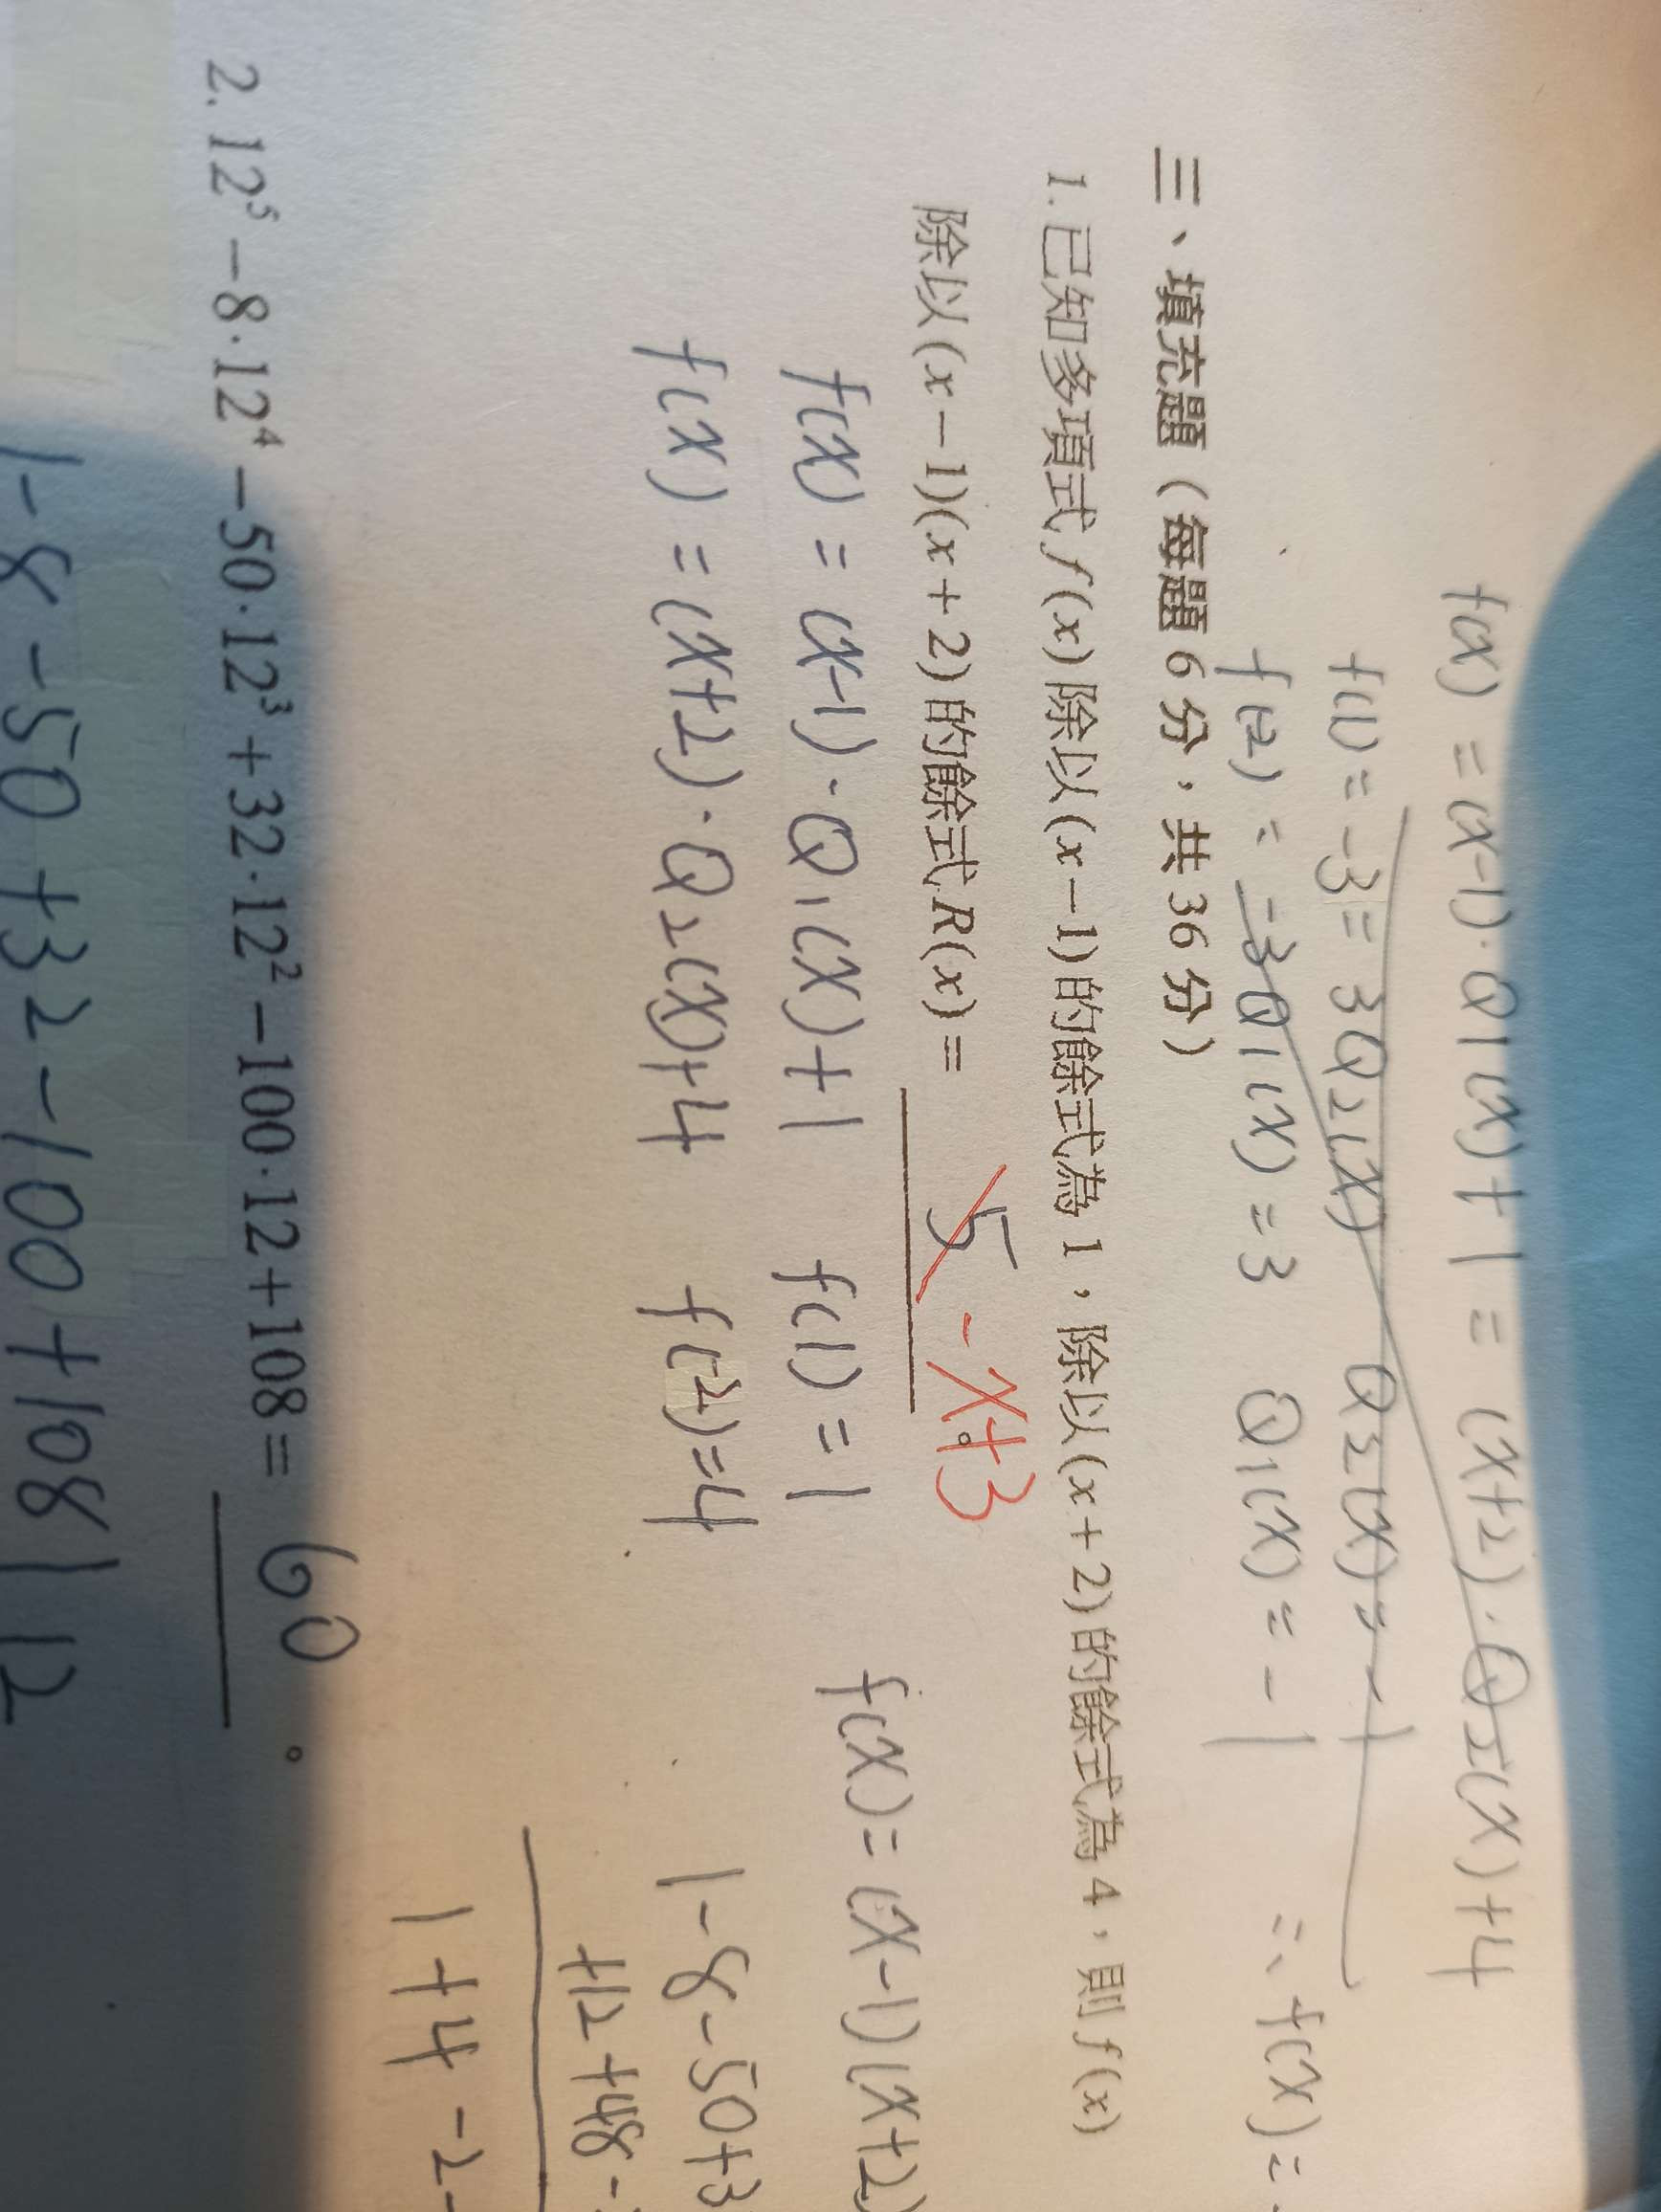 f(x) = (x-1)·Q1(x)+1 = (x+2)·Q2(x)+4
f(1) = -3 = 3Q2(x) Q2(x) = -1
f(-2) = -3Q1(x) = 3 Q1(x) = -1 ∴ f(x) =
三、填充題(每題 6 分,共 36 分)
1. 已知多項式 f(x) 除以 (x-1) 的餘式為 1,除以 (x+2) 的餘式為 4,則 f(x)
除以 (x-1)(x+2) 的餘式 R(x) = 5 -x+3 。
f(x) = (x-1)·Q1(x)+1 f(1) = 1 f(x) = (x-1)(x+2)
f(x) = (x+2)·Q2(x)+4 f(-2) = 4 1-8-50+3
+12+48-
1+4-2-
2. 12⁵-8·12⁴-50·12³+32·12²-100·12+108 = 60 。
1-8-50+32-100+108 | 12